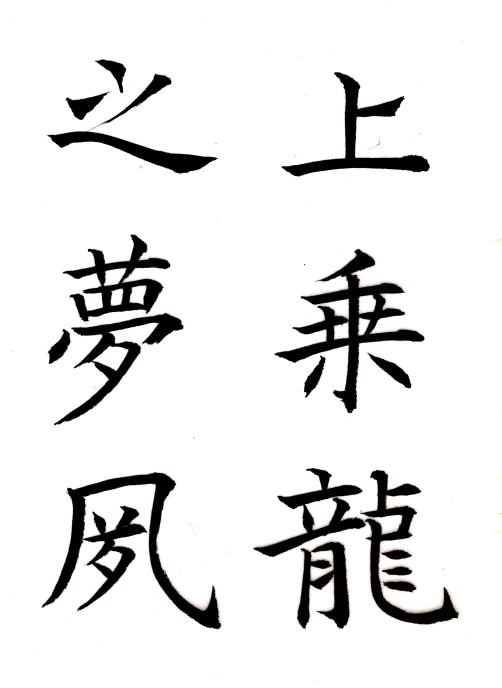 上乗龍
之夢